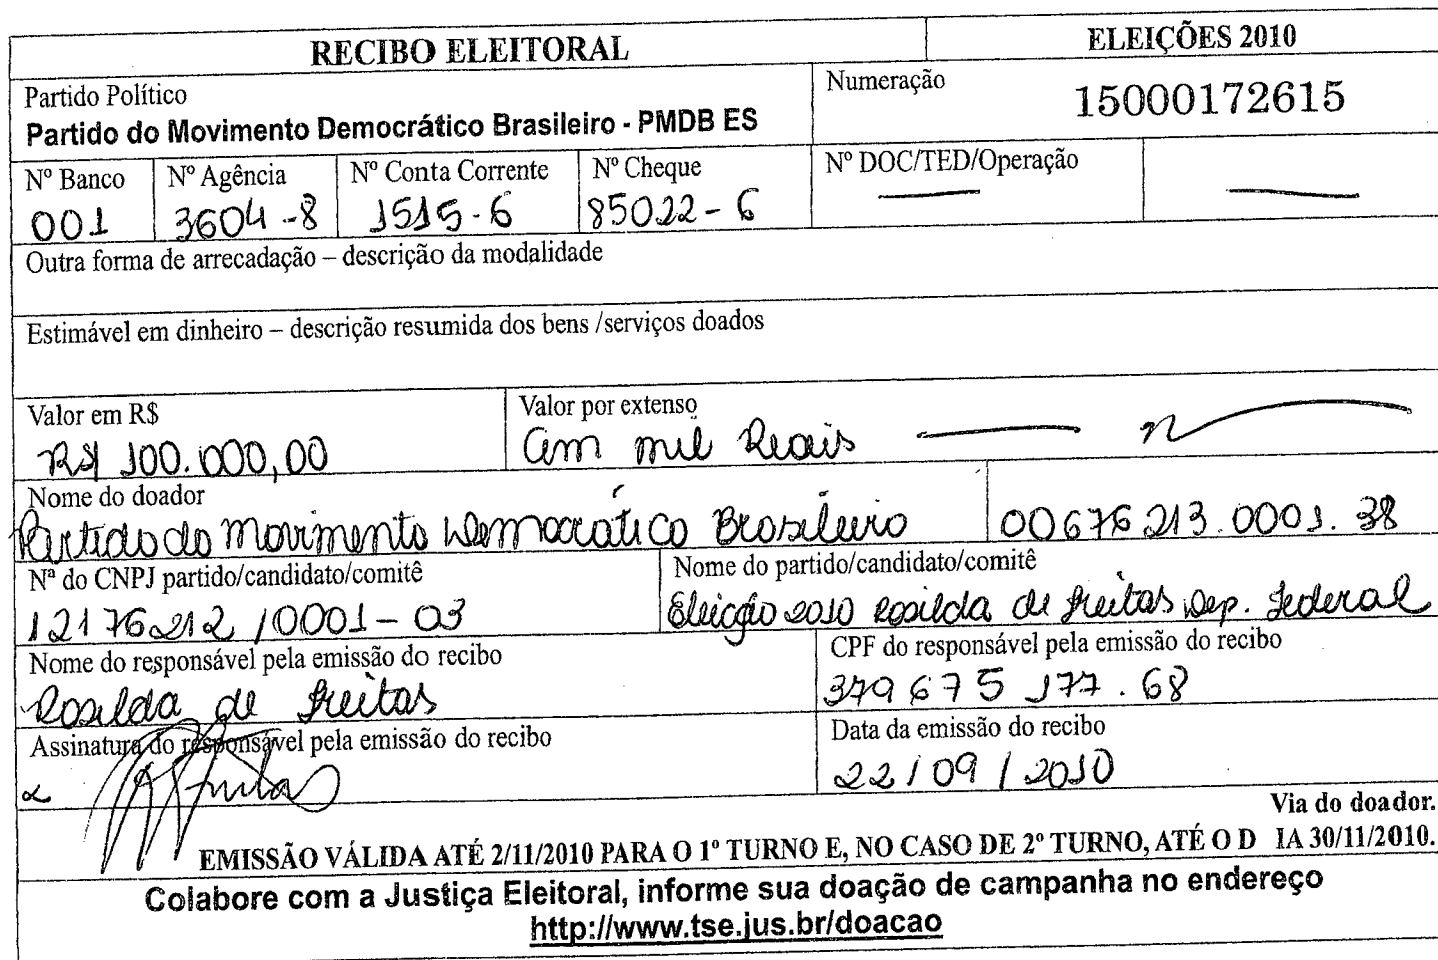 RECIBO ELEITORAL ELEIÇÕES 2010
Partido Político Numeração
Partido do Movimento Democrático Brasileiro - PMDB ES 15000172615
Nº Banco Nº Agência Nº Conta Corrente Nº Cheque Nº DOC/TED/Operação
001 3604-8 1515-6 85022-6
Outra forma de arrecadação – descrição da modalidade
Estimável em dinheiro – descrição resumida dos bens /serviços doados
Valor em R$ Valor por extenso
R$ 100.000,00 Cem mil Reais
Nome do doador
Partido do Movimento Democrático Brasileiro 00676213.0001.38
Nª do CNPJ partido/candidato/comitê Nome do partido/candidato/comitê
12176212/0001-03 Eleicção 2010 Rosilda de Freitas Dep. Federal
Nome do responsável pela emissão do recibo CPF do responsável pela emissão do recibo
Rosilda de Freitas 379675177.68
Assinatura do responsável pela emissão do recibo Data da emissão do recibo
22/09/2010
Via do doador.
EMISSÃO VÁLIDA ATÉ 2/11/2010 PARA O 1º TURNO E, NO CASO DE 2º TURNO, ATÉ O D IA 30/11/2010.
Colabore com a Justiça Eleitoral, informe sua doação de campanha no endereço
http://www.tse.jus.br/doacao